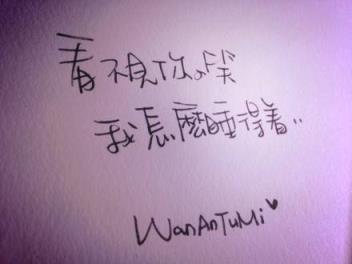 看不見你の笑
我怎麼睡得着..
WanAnTuMi